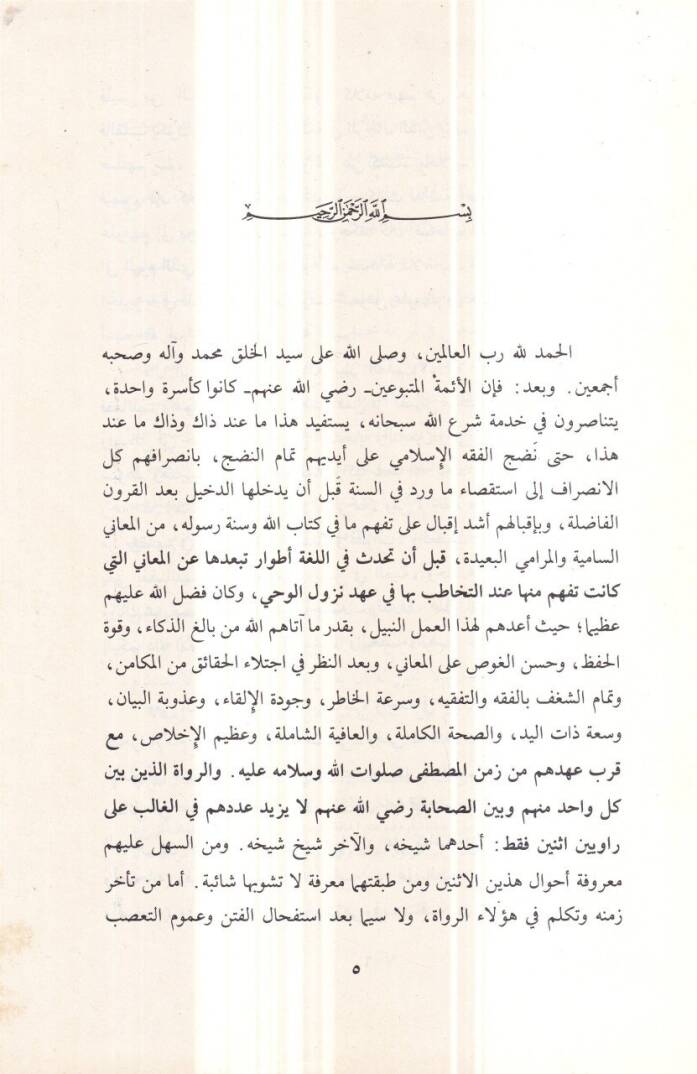 بسم الله الرحمن الرحيم
الحمد لله رب العالمين، وصلى الله على سيد الخلق محمد وآله وصحبه
أجمعين. وبعد: فإن الأئمةْ المتبوعين- رضي الله عنهم- كانوا كأسرة واحدة،
يتناصرون في خدمة شرع الله سبحانه، يستفيد هذا ما عند ذاك وذاك ما عند
هذا، حتى نَضج الفقه الإسلامي على أيديهم تمام النضج، بانصرافهم كل
الانصراف إلى استقصاء ما ورد في السنة قَبل أن يدخلها الدخيل بعد القرون
الفاضلة، وبإقبالهم أشد إقبال على تفهم ما في كتاب الله وسنة رسوله، من المعاني
السامية والمرامي البعيدة، قبل أن تحدث في اللغة أطوار تبعدها عن المعاني التي
كانت تفهم منها عند التخاطب بها في عهد نزول الوحي، وكان فضل الله عليهم
عظيما؛ حيث أعدهم لهذا العمل النبيل، بقدر ما آتاهم الله من بالغ الذكاء، وقوة
الحفظ، وحسن الغوص على المعاني، وبعد النظر في اجتلاء الحقائق من المكامن،
وتمام الشغف بالفقه والتفقيه، وسرعة الخاطر، وجودة الإلقاء، وعذوبة البيان،
وسعة ذات اليد، والصحة الكاملة، والعافية الشاملة، وعظيم الإخلاص، مع
قرب عهدهم من زمن المصطفى صلوات الله وسلامه عليه. والرواة الذين بين
كل واحد منهم وبين الصحابة رضي الله عنهم لا يزيد عددهم في الغالب على
راويين اثنين فقط: أحدهما شيخه، والآخر شيخ شيخه. ومن السهل عليهم
معروفة أحوال هذين الاثنين ومن طبقتهما معرفة لا تشوبها شائبة. أما من تأخر
زمنه وتكلم في هؤلاء الرواة، ولا سيما بعد استفحال الفتن وعموم التعصب
٥